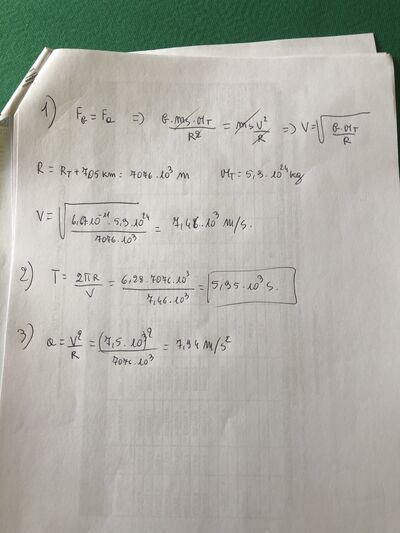 1) F_G = F_a => G·m_s·M_T / R² = m_s V² / R => V = √(G·M_T / R)
R = R_T + 705 km = 7076·10³ m M_T = 5,3·10²⁴ kg
V = √(6,67·10⁻¹¹·5,3·10²⁴ / 7076·10³) = 7,46·10³ m/s.
2) T = 2πR / V = 6,28·7076·10³ / 7,46·10³ = 5,95·10³ s.
3) a = V² / R = (7,5·10³)² / 7076·10³ = 7,94 m/s²